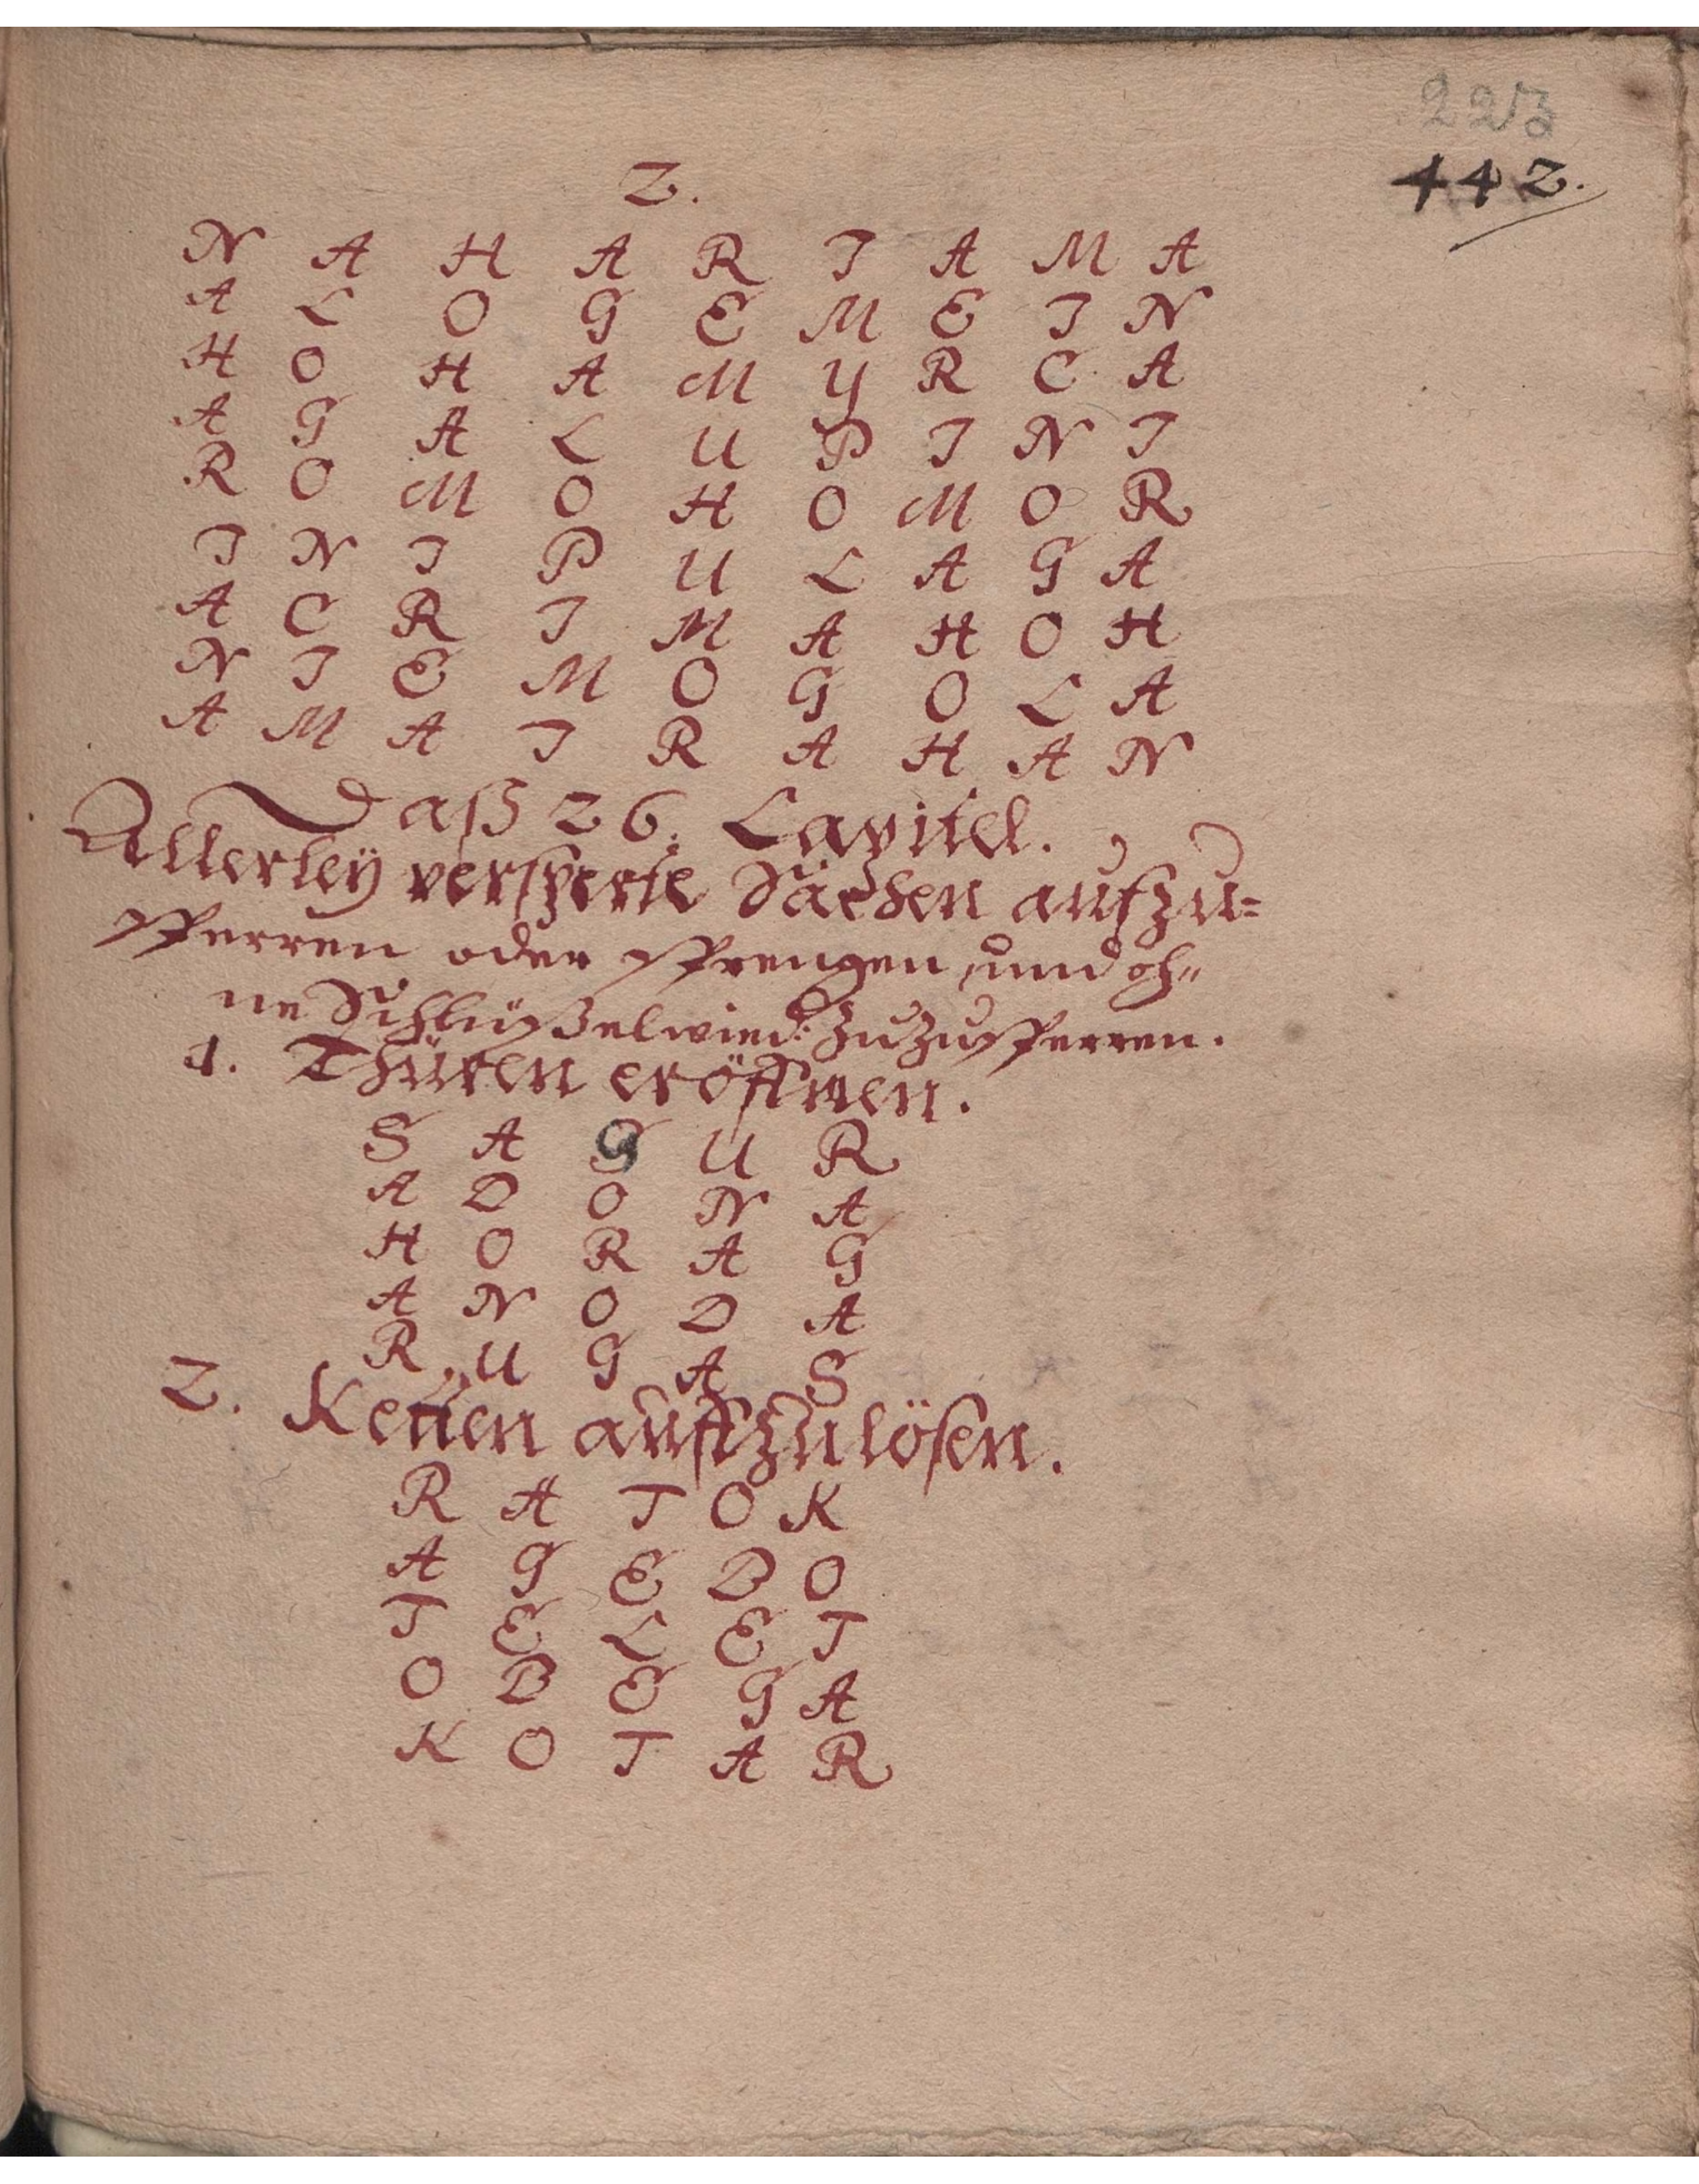 223
442.
2.
N A H A R I A M A
A L O G E M E I N
H O H A M Y R C A
A G A L U P I N I
R O M O H O M O R
I N I P U L A G A
A C R I M A H O H
N I E M O G O L A
A M A I R A H A N
Daß 26. Capitel.
Allerleÿ versperte Sachen aufzu=
sperren oder sprengen, und oh„
ne Schlüßel wied: zuzusperren.
1. Thüren eröffnen.
S A G U R
A D O N A
H O R A G
A N O D A
R U G A S
2. Ketten auffzulösen.
R A T O K
A G E B O
T E L E T
O B E G A
K O T A R